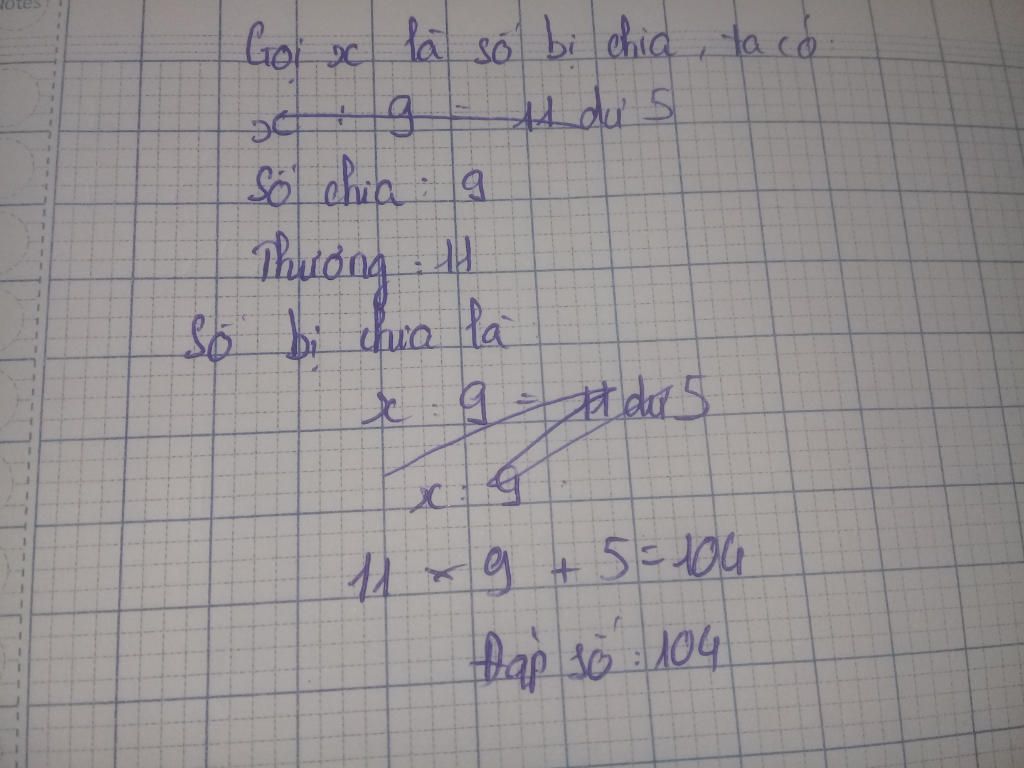 Notes
Gọi x là số bị chia, ta có
x : 9 = 11 dư 5
Số chia : 9
Thương : 11
Số bị chia là
x : 9 = 11 dư 5
x : 9
11 x 9 + 5 = 104
Đáp số : 104